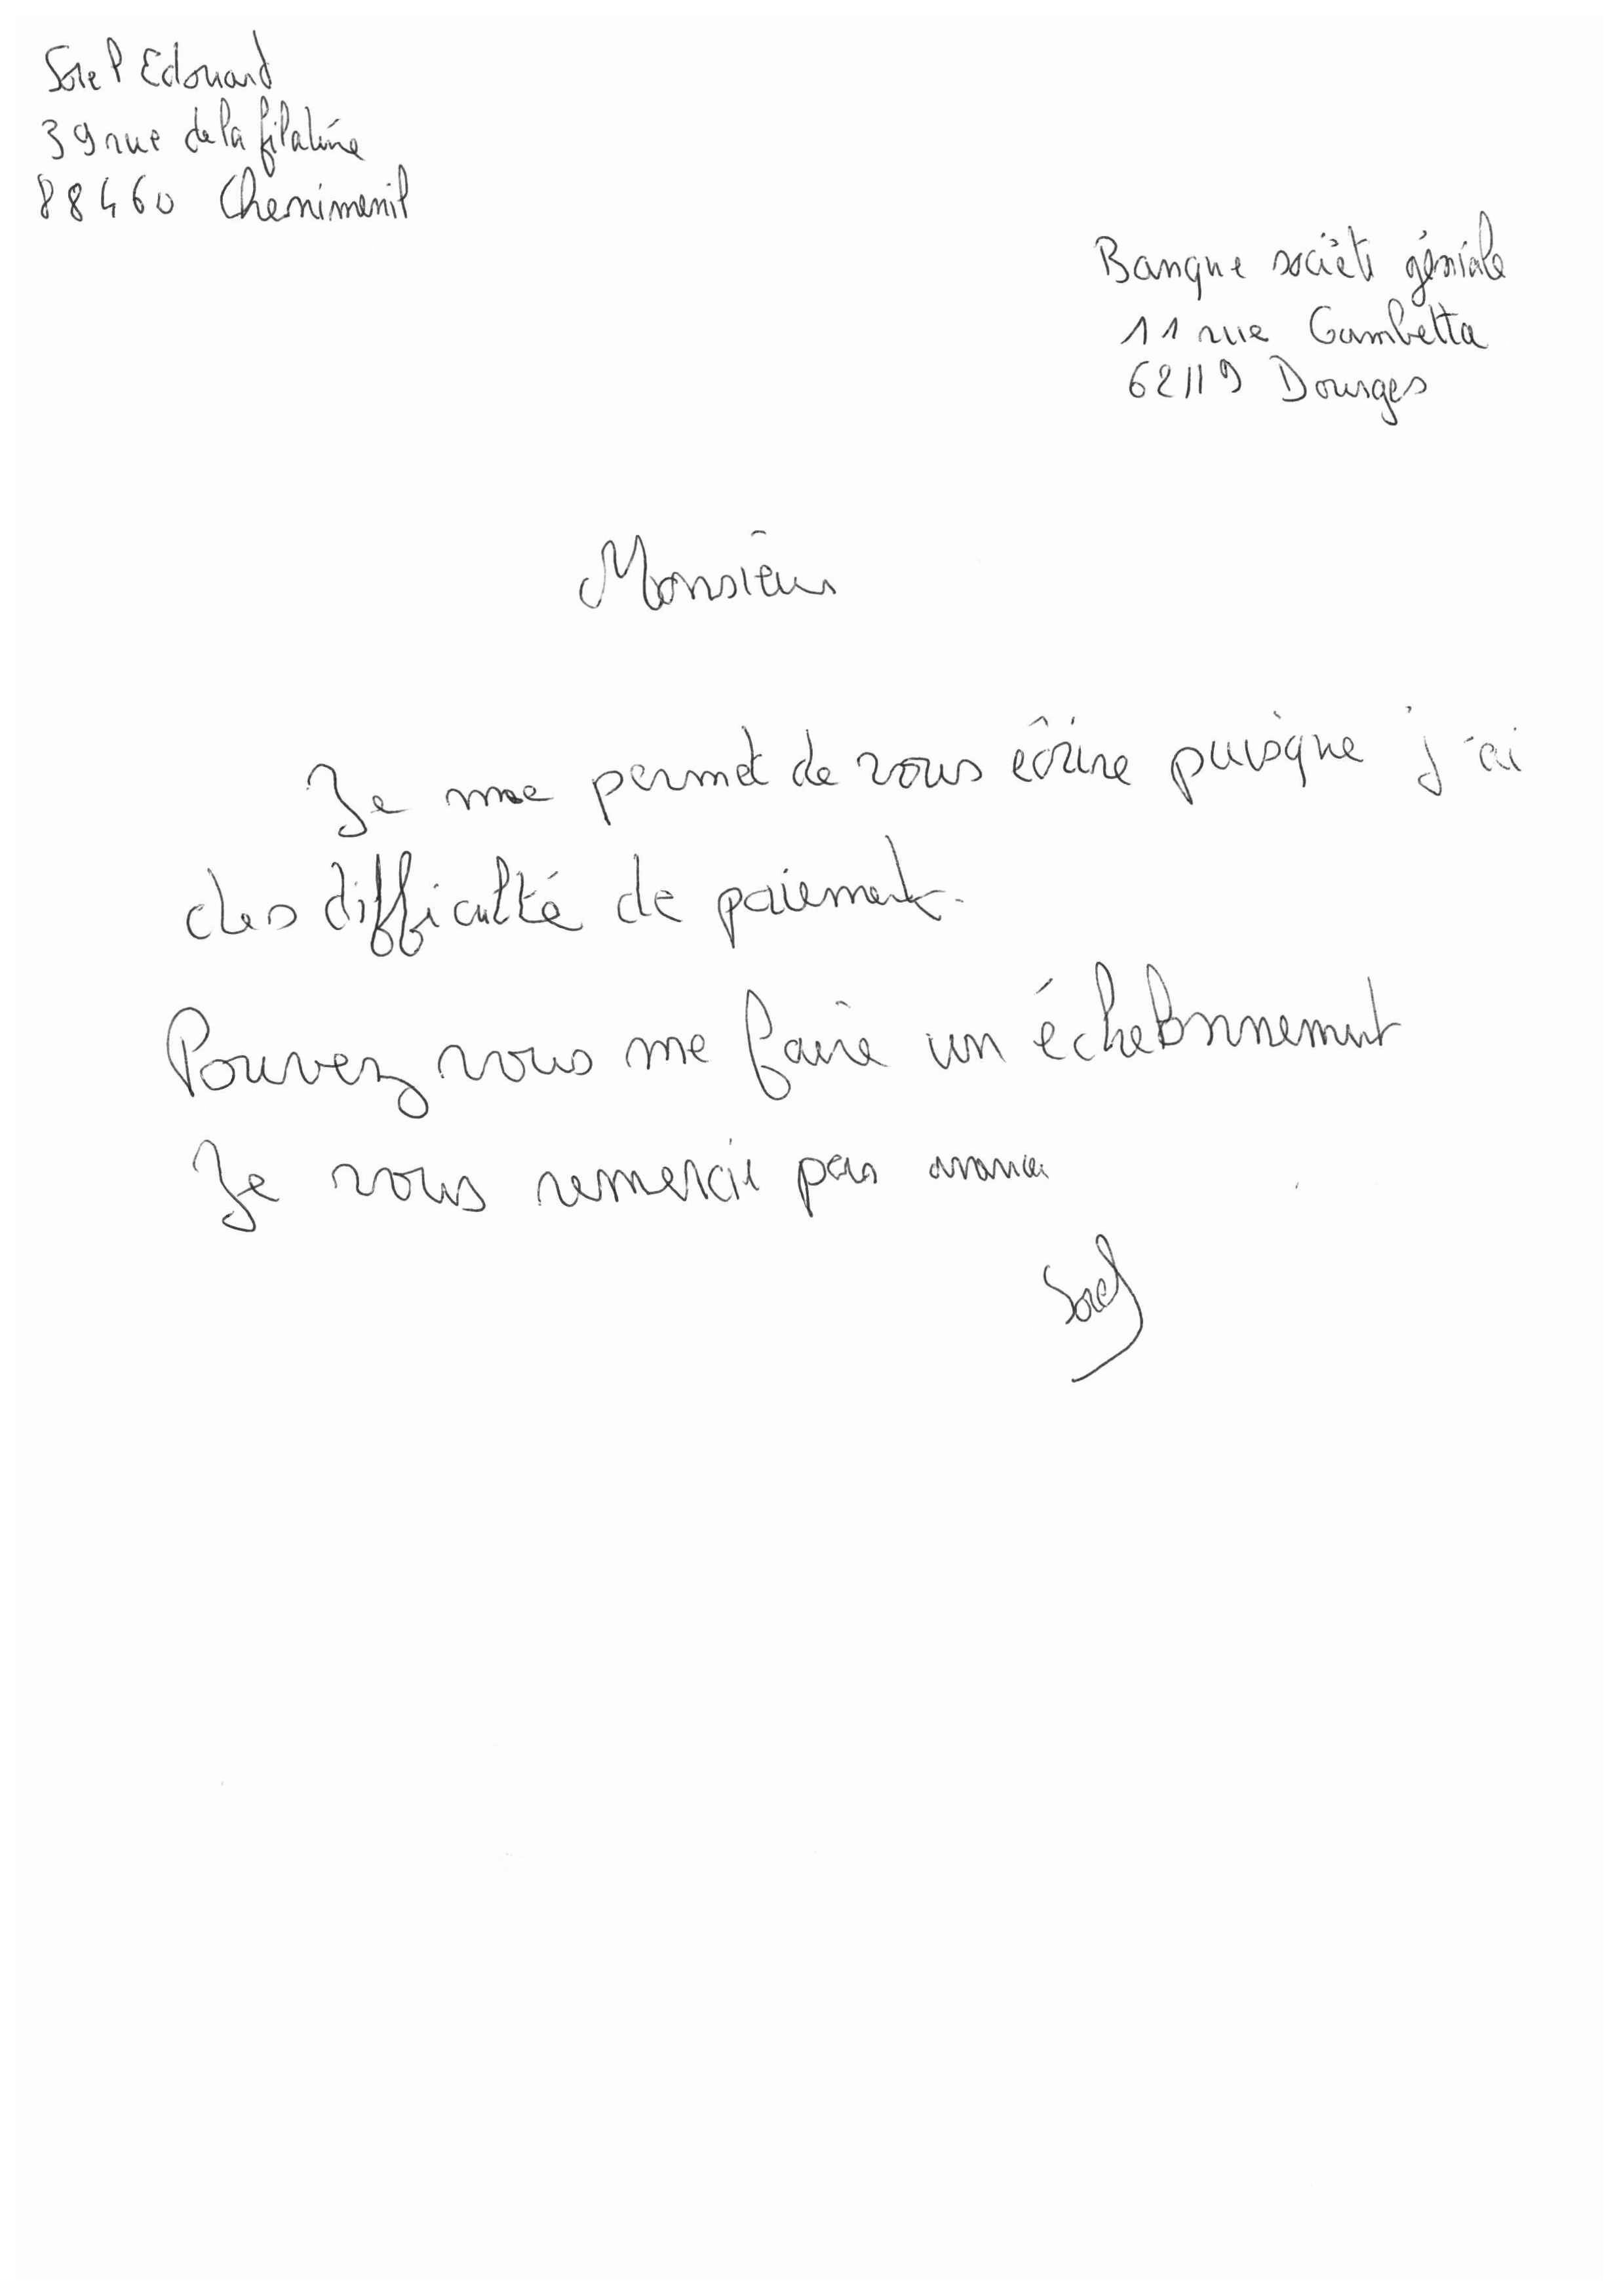 Sorel Edouard
39 rue de la filature
88460 Chenimenil
Banque société géniale
11 rue Gambetta
62119 Dourges
Monsieur
Je me permet de vous écrire puisque j'ai
des difficulté de paiement.
Pouvez vous me faire un échelonnement
Je vous remercie par avance
Sorel